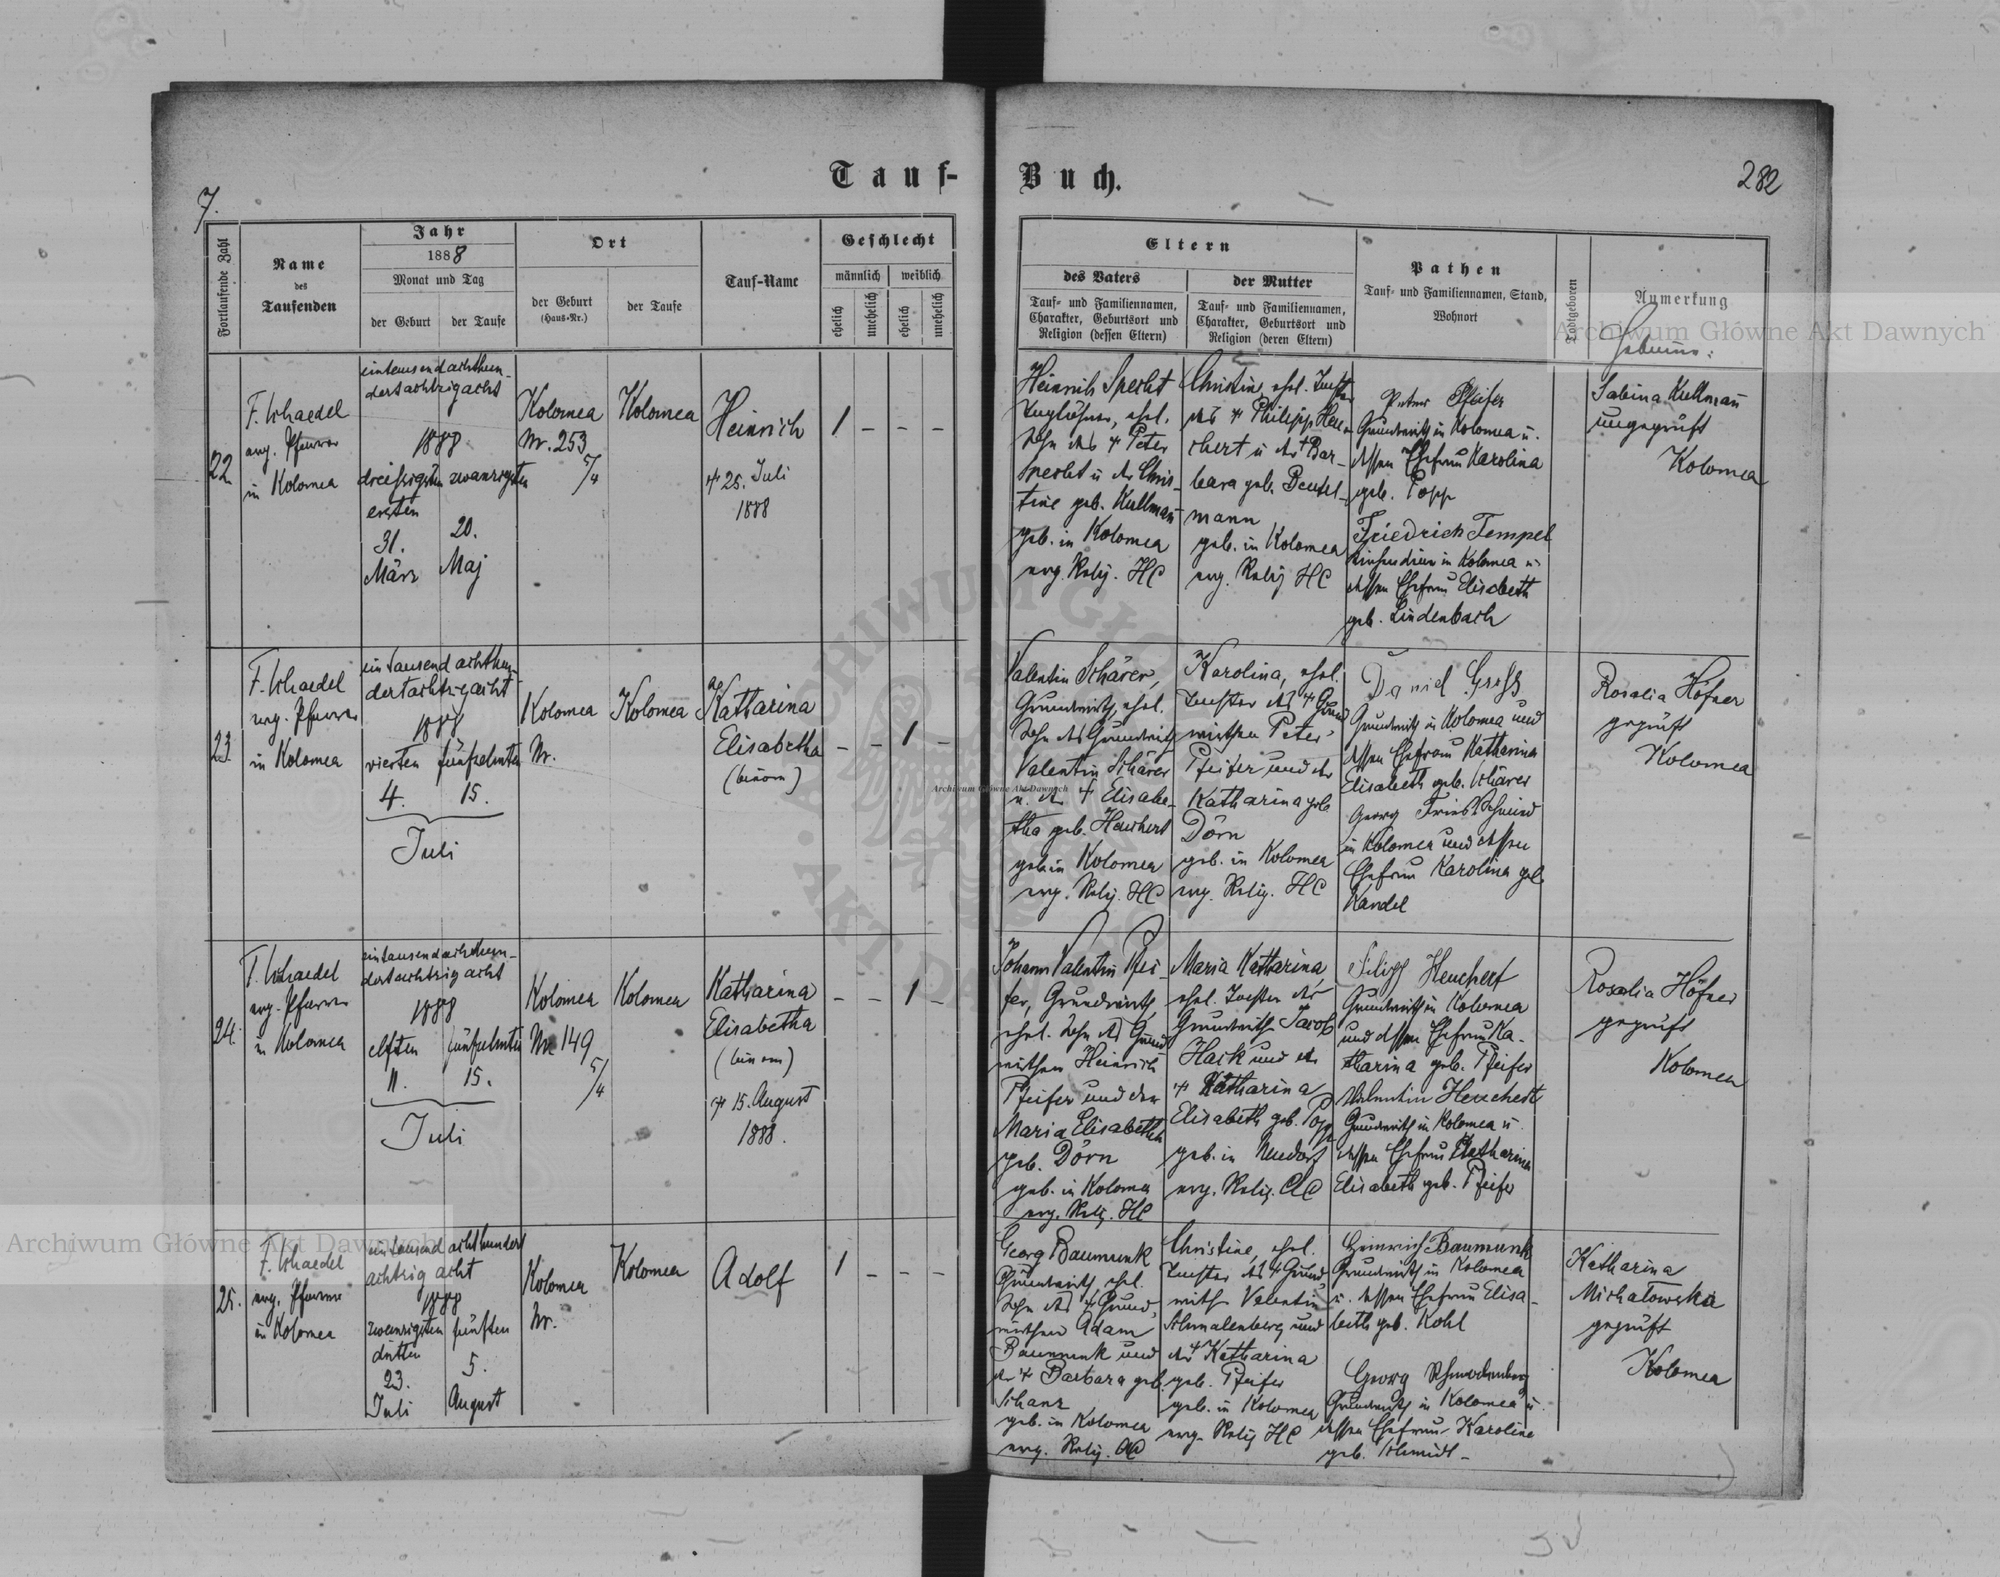 Tauf-
Buch.
7.
282
Fortlaufende Zahl
Name
des
Taufenden
Jahr
1888
Monat und Tag
der Geburt
der Taufe
Ort
der Geburt
(Haus-Nr.)
der Taufe
Tauf-Name
Geschlecht
männlich
weiblich
ehelich
unehelich
ehelich
unehelich
Eltern
des Vaters
Tauf- und Familiennamen,
Charakter, Geburtsort und
Religion (dessen Eltern)
der Mutter
Tauf- und Familiennamen,
Charakter, Geburtsort und
Religion (deren Eltern)
Pathen
Tauf- und Familiennamen, Stand,
Wohnort
Todtgeboren
Anmerkung
22
F. Schaedel
evg. Pfarrer
in Kolomea
eintausendachthun-
dertachtzigacht
1888
dreißigsten zwanzigsten
ersten
31. 20.
März Maj
Kolomea
Nr. 253
5/4
Kolomea
Heinrich
† 25. Juli
1888
1 – – –
Heinrich Specht
Taglöhner, ehel.
Sohn des † Peter
Specht u. der Chris-
tine geb. Kullmann
geb. in Kolomea
evg. Relig. HC
Christine, ehel. Tochter
des † Philipp Heu-
chert u. der † Bar-
bara geb. Beutel-
mann
geb. in Kolomea
evg. Relig HC
Peter Pfeifer
Grundwirth in Kolomea u.
dessen Ehefrau Karolina
geb. Popp
Friedrich Tempel
Kirchendiener in Kolomea u.
dessen Ehefrau Elisabeth
geb. Lindenbach
Sabina Kullmann
ungeprüft
Kolomea
23.
F. Schaedel
evg. Pfarrer
in Kolomea
eintausendachthun-
dertachtzigacht
1888
vierten fünfzehnten
4. 15.
Juli
Kolomea
Nr.
Kolomea
Katharina
Elisabetha
(binom)
– – 1 –
Valentin Schärer,
Grundwirth, ehel.
Sohn des Grundwirth
Valentin Schärer
u. der † Elisabe-
tha geb. Heuchert
geb. in Kolomea
evg. Relig. HC
Karolina, ehel.
Tochter des † Grund
wirthen Peter
Pfeifer und der
Katharina geb
Dörn
geb. in Kolomea
evg. Relig. HC
Daniel Groß
Grundwirth in Kolomea und
dessen Ehefrau Katharina
Elisabeth geb. Schärer
Georg Fries Schmied
in Kolomea und dessen
Ehefrau Karolina geb
Kandel
Rosalia Höfner
geprüft
Kolomea
24.
F. Schaedel
evg. Pfarrer
in Kolomea
eintausendachthun-
dertachtzigacht
1888
elften fünfzehnten
11. 15.
Juli
Kolomea
Nr. 149
5/4
Kolomea
Katharina
Elisabetha
(binom)
† 15. August
1888.
– – 1 –
Johann Valentin Pfei-
fer, Grundwirth,
ehel. Sohn des Grund
wirthen Heinrich
Pfeifer und der
Maria Elisabetha
geb. Dörn
geb. in Kolomea
evg. Relig. HC
Maria Katharina
ehel. Tochter des
Grundwirth Jacob
Hack und der
† Katharina
Elisabeth geb. Popp
geb. in Neudorf
evg. Relig. AC
Filipp Heuchert
Grundwirth in Kolomea
und dessen Ehefrau Ka-
tharina geb. Pfeifer
Valentin Heuchert
Grundwirth in Kolomea u.
dessen Ehefrau Katharina
Elisabeth geb. Pfeifer
Rosalia Höfner
geprüft
Kolomea
25.
F. Schaedel
evg. Pfarrer
in Kolomea
eintausend achthundert
achtzig acht
1888
zwanzigsten fünften
dritten
23. 5.
Juli August
Kolomea
Nr.
Kolomea
Adolf
1 – – –
Georg Baumunk
Grundwirth, ehel.
Sohn des † Grund
wirthen Adam
Baumunk und
der † Barbara geb.
Schanz
geb. in Kolomea
evg. Relig. AC
Christine, ehel.
Tochter des † Grund
wirth Valentin
Schmalenberg und
der † Katharina
geb. Pfeifer
geb. in Kolomea
evg. Relig HC
Heinrich Baumunk
Grundwirth in Kolomea
u. dessen Ehefrau Elisa-
beth geb. Kohl
Georg Schmalenberg
Grundwirth in Kolomea u.
dessen Ehefrau Karoline
geb. Schmidt
Katharina
Michałowska
geprüft
Kolomea
Archiwum Główne Akt Dawnych
Archiwum Główne Akt Dawnych
Archiwum Główne Akt Dawnych